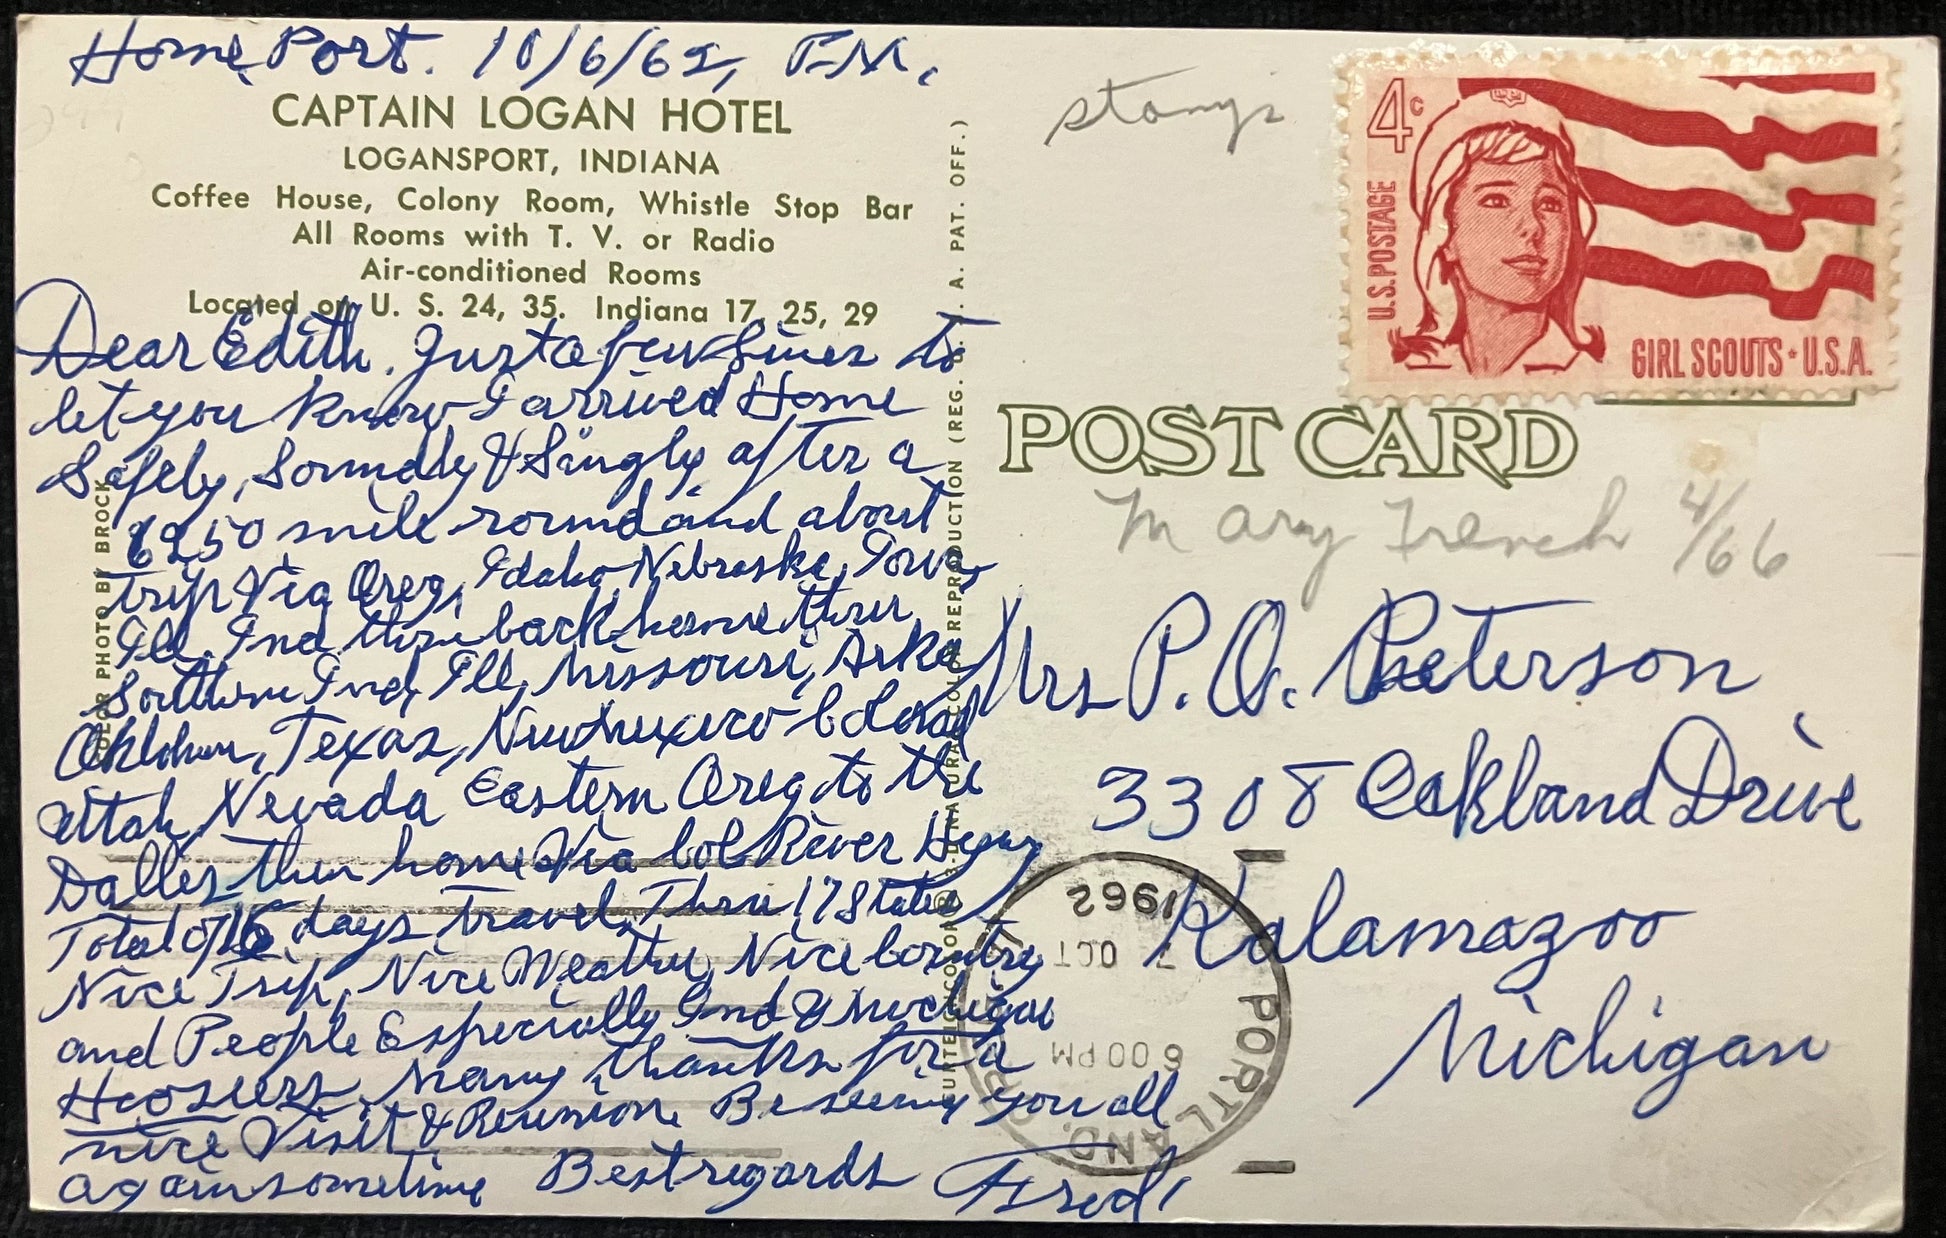 Home Port. 10/6/62, P.M.
CAPTAIN LOGAN HOTEL
LOGANSPORT, INDIANA
Coffee House, Colony Room, Whistle Stop Bar
All Rooms with T. V. or Radio
Air-conditioned Rooms
Located on U. S. 24, 35. Indiana 17, 25, 29
Dear Edith. Just a few lines to
let you know I arrived Home
Safely, Soundly & Singly after a
6250 mile round and about
trip Via Oreg, Idaho Nebraska, Iowa
Ill. Ind then back home thru
Southern Ind, Ill, Missouri, Arka
Oklahom, Texas, New Mexico Colorad
Uttah, Nevada Eastern Oreg to the
Dalles then home Via Col River Hgwy
Total of 16 days travel, Thru 17 States
Nice Trip, Nice Weather, Nice Country
and People Especially Ind & Michigan
Hoosiers. Many thanks for a
nice Visit & Reunion. Be seeing you all
again sometime Best regards Fred
COLOR PHOTO BY BROCK
CURTEICHCOLOR® 3-D NATURAL COLOR REPRODUCTION (REG. U.S.A. PAT. OFF.)
stamps
4c
U.S. POSTAGE
GIRL SCOUTS • U.S.A.
POST CARD
Mary French 4/66
Mrs P. O. Peterson
3308 Oakland Drive
Kalamazoo
Michigan
PORTLAND, OREG
6 00 PM
7 OCT
1962